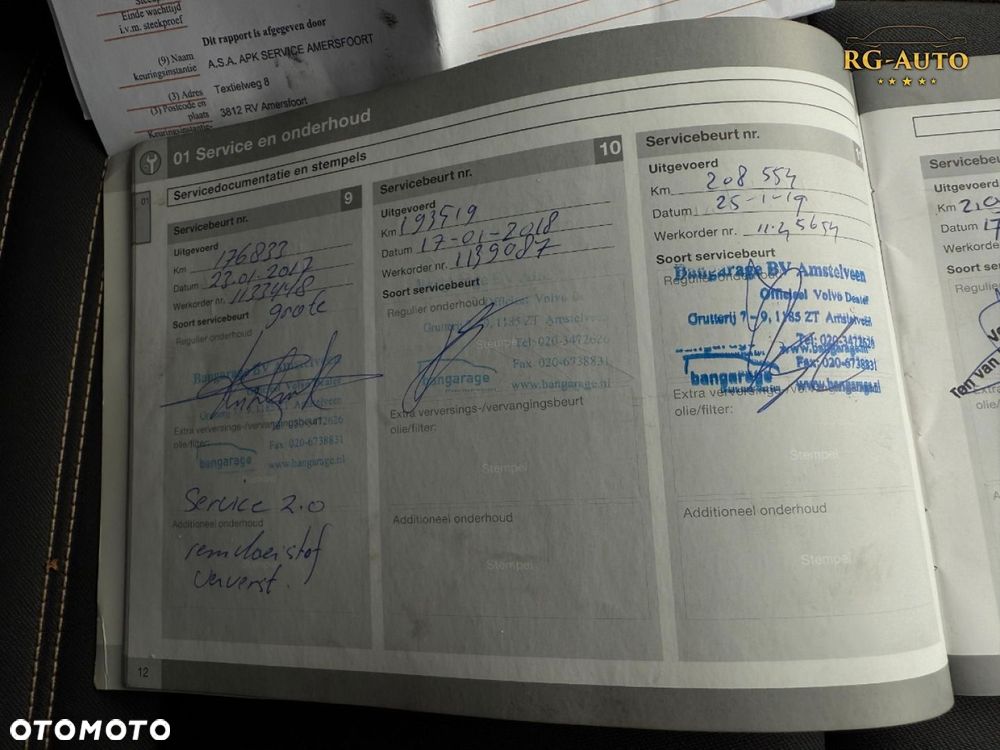 Einde wachttijd
i.v.m. steekproef
Dit rapport is afgegeven door
(9) Naam
keuringsinstantie
A.S.A. APK SERVICE AMERSFOORT
(3) Adres
Textielweg 8
(3) Postcode en
plaats
3812 RV Amersfoort
Keuringsinstantie-
RG-AUTO
01 Service en onderhoud
Servicedocumentatie en stempels
01
Servicebeurt nr.
9
Uitgevoerd
Km 176833
Datum 23-01-2017
Werkorder nr. 1133448
Soort servicebeurt
grote
Regulier onderhoud
Bangarage BV Amstelveen
Extra verversings-/vervangingsbeurt
olie/filter:
Fax: 020-6738831
bangarage
www.bangarage.nl
Service 2.0
Additioneel onderhoud
remvloeistof
ververst.
12
Servicebeurt nr.
10
Uitgevoerd
Km 193519
Datum 17-01-2018
Werkorder nr. 1139087
Soort servicebeurt
Regulier onderhoud
Officieel Volvo
Grutterij 7-9, 1185 ZT Amstelveen
Tel: 020-3472626
Fax: 020-6738831
bangarage
www.bangarage.nl
Extra verversings-/vervangingsbeurt
olie/filter:
Stempel
Additioneel onderhoud
Stempel
Servicebeurt nr.
Uitgevoerd
Km 208.554
Datum 25-1-19
Werkorder nr.
Soort servicebeurt
Bangarage BV Amstelveen
Regulier onderhoud
Officieel Volvo Dealer
Grutterij 7-9, 1185 ZT Amstelveen
Tel: 020-3472626
www.bangarage.nl
Fax: 020-6738831
bangarage
www.bangarage.nl
Extra verversings-/vervangingsbeurt
olie/filter:
Stempel
Additioneel onderhoud
Stempel
Servicebeurt
Uitgevoerd
Km
Datum
Werkorder
Regulier
Ten van
OTOMOTO